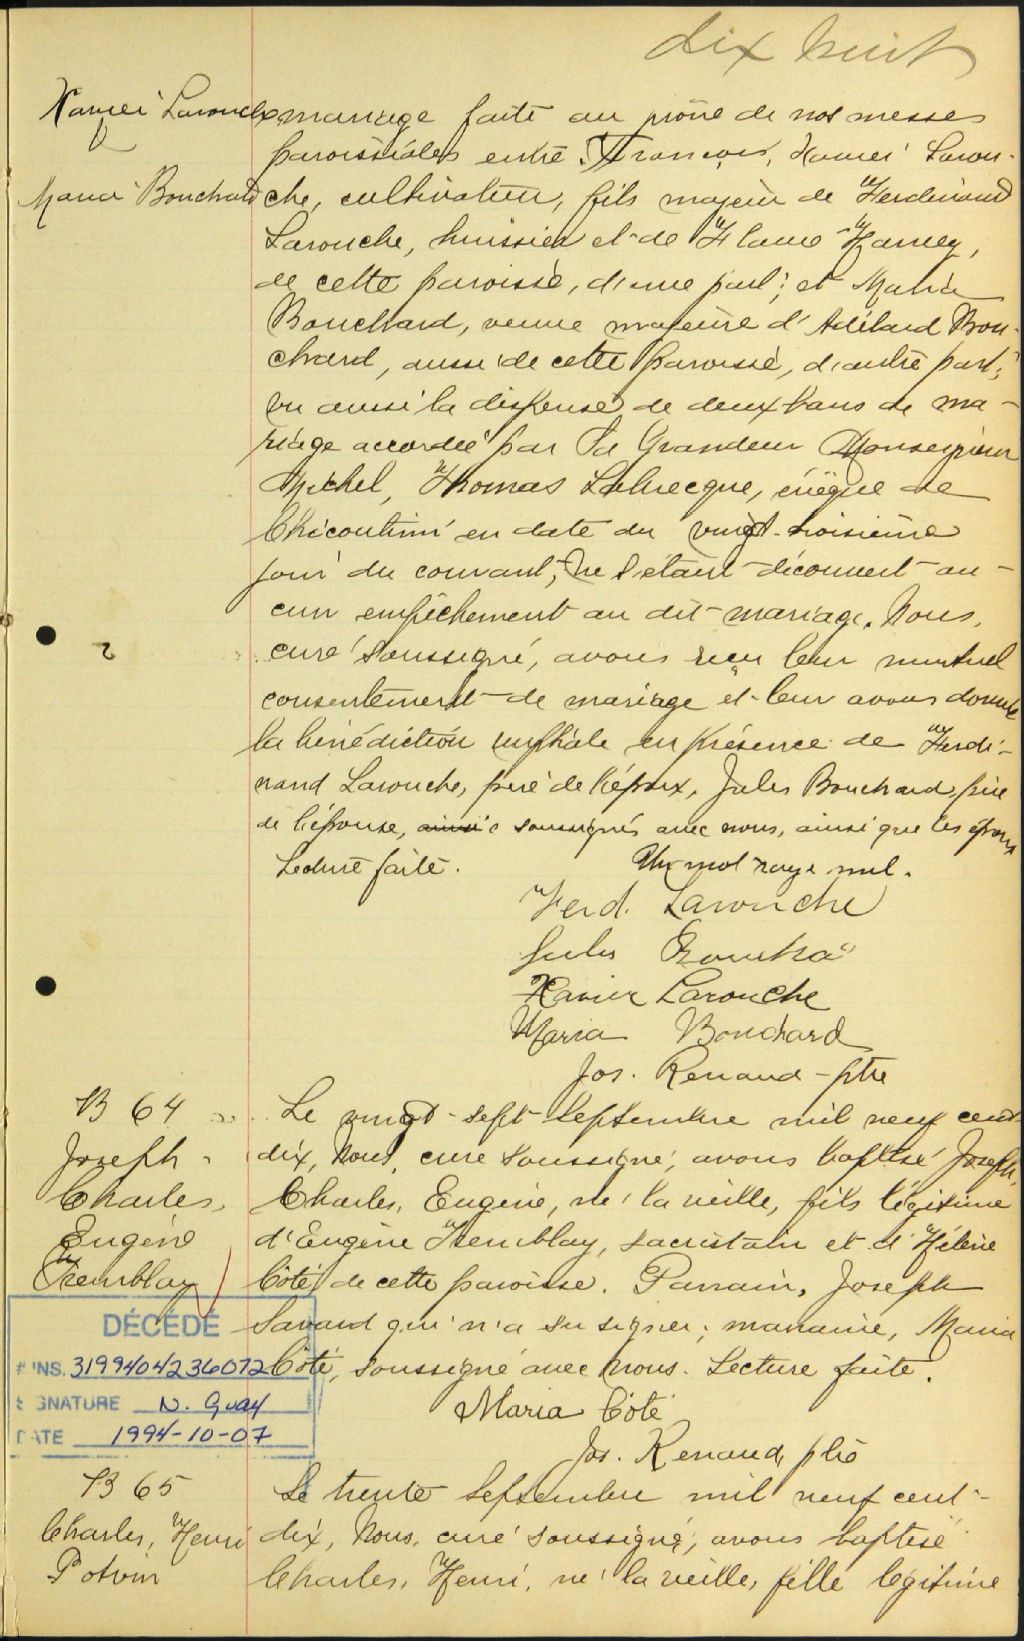 dix huit
Xavier Larouche
Maria Bouchard
mariage faite au prône de nos messes
paroissiales entre François, Xavier Larou-
che, cultivateur, fils majeur de Ferdinand
Larouche, huissier et de Flavie Harvey,
de cette paroisse, d'une part; et Maria
Bouchard, veuve majeure d'Adélard Bou-
chard, aussi de cette paroisse, d'autre part;
vu aussi la dispense de deux bans de ma-
riage accordée par Sa Grandeur Monseigneur
Michel, Thomas Labrecque, évêque de
Chicoutimi en date du vingt-troisième
jour du courant, ne s'étant découvert au-
cun empêchement au dit mariage. Nous,
curé soussigné, avons reçu leur mutuel
consentement de mariage et leur avons donné
la bénédiction nuptiale en présence de Ferdi-
nand Larouche, père de l'époux, Jules Bouchard, père
de l'épouse, soussignés avec nous, ainsi que les époux
Lecture faite. Un mot rayé nul.
Ferd. Larouche
Jules
Xavier Larouche
Maria Bouchard
Jos. Renaud ptre
B 64
Joseph
Charles,
Eugène
Tremblay
Le vingt-sept Septembre mil neuf cent
dix, Nous, curé soussigné, avons baptisé Joseph,
Charles, Eugène, né la veille, fils légitime
d'Eugène Tremblay, sacristain et d'Hélène
Côté de cette paroisse. Parrain, Joseph
Savard qui n'a su signer; marraine, Maria
Côté, soussigné avec nous. Lecture faite.
Maria Côté
Jos. Renaud, ptre
DÉCÉDÉ
# INS. 3199404236072
SIGNATURE N. Guay
DATE 1994-10-07
B 65
Charles, Henri
Potvin
Le trente Septembre mil neuf cent-
dix, Nous, curé soussigné, avons baptisé
Charles, Henri, né la veille, fille légitime